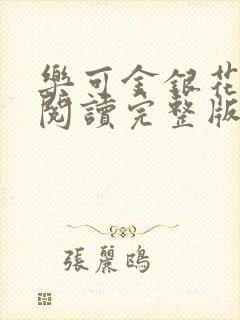 樂可金銀花
閱讀完整版
張麗鴎